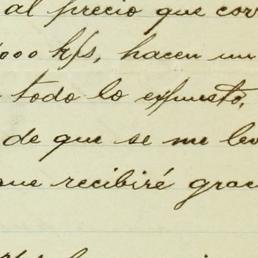 al precio que cor
000 kgs, hacen un
todo lo expuesto,
de que se me le
que recibiré grac